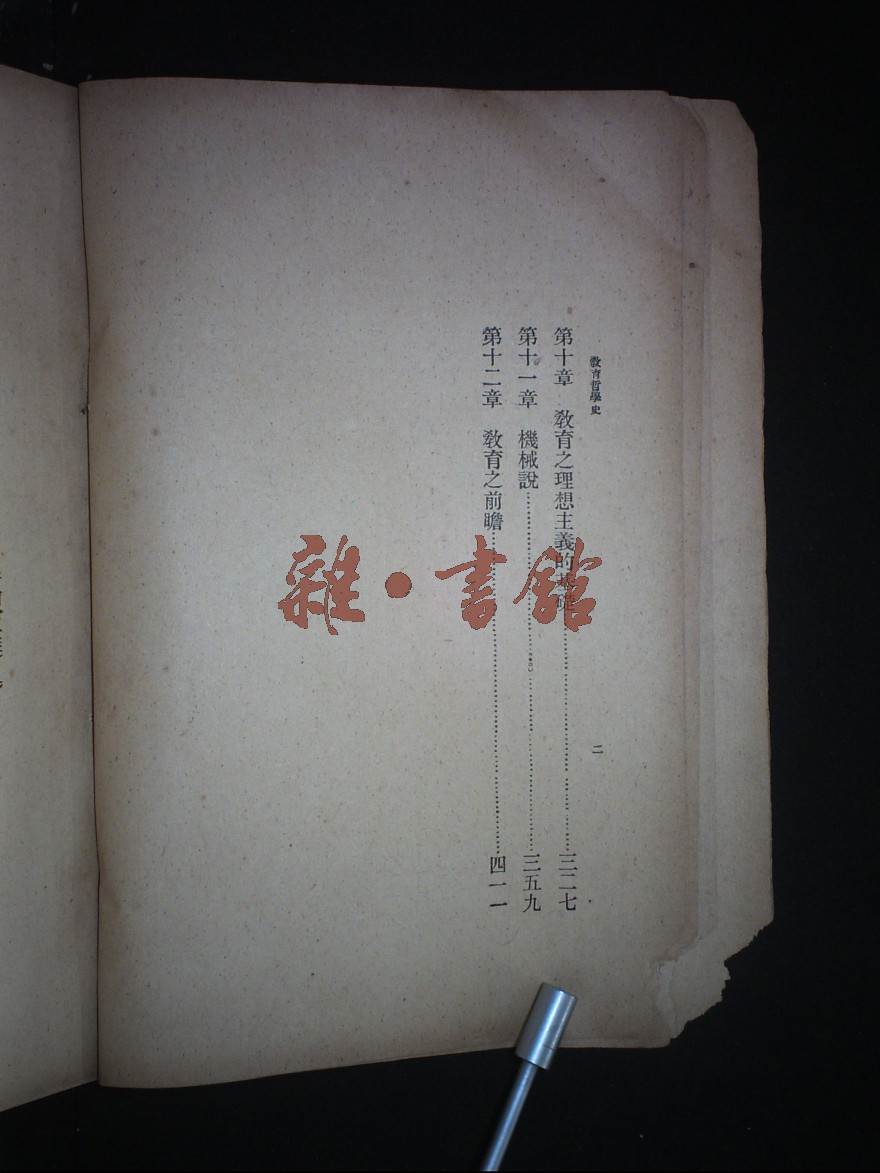 教育哲學史
二
第十章　教育之理想主義的基礎……三二七
第十一章　機械說……三五九
第十二章　教育之前瞻……四一一
雜·書館